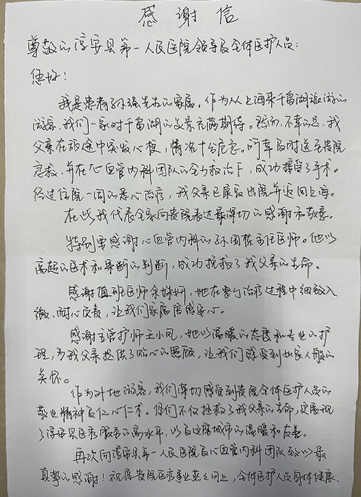 感谢信
尊敬的淳安县第一人民医院领导及全体医护人员：
您好！
我是患者孙强先生的家属。作为从上海来千岛湖旅游的
游客，我们一家对千岛湖的美景充满期待。然而不幸的是，我
父亲在旅途中突发心梗，情况十分危急。所幸及时送至贵院
急救，并在心血管内科团队的全力救治下，成功接受了手术。
经过住院一周的悉心治疗，我父亲已康复出院并返回上海。
在此我代表全家向贵院表达最深切的感谢和敬意。
特别要感谢心血管内科的 主任医师。他以
高超的医术和果断的判断，成功挽救了我父亲的生命。
感谢值班医师余 ，她在整个治疗过程中细致入
微、耐心负责，让我们家属倍感安心。
感谢主管护师王小 ，她以温暖的态度和专业的护
理，为我父亲提供了贴心的照顾，让我们感受到如家人般的
关怀。
作为外地游客，我们深切感受到贵院全体医护人员的
敬业精神及仁心仁术。你们不仅拯救了我父亲的生命，更展现
了淳安县医疗服务的高水平，以及这座城市的温暖和友善。
再次向淳安县第一人民医院心血管内科团队致以最
真挚的感谢！祝愿贵院医疗事业蒸蒸日上，全体医护人员身体健康、